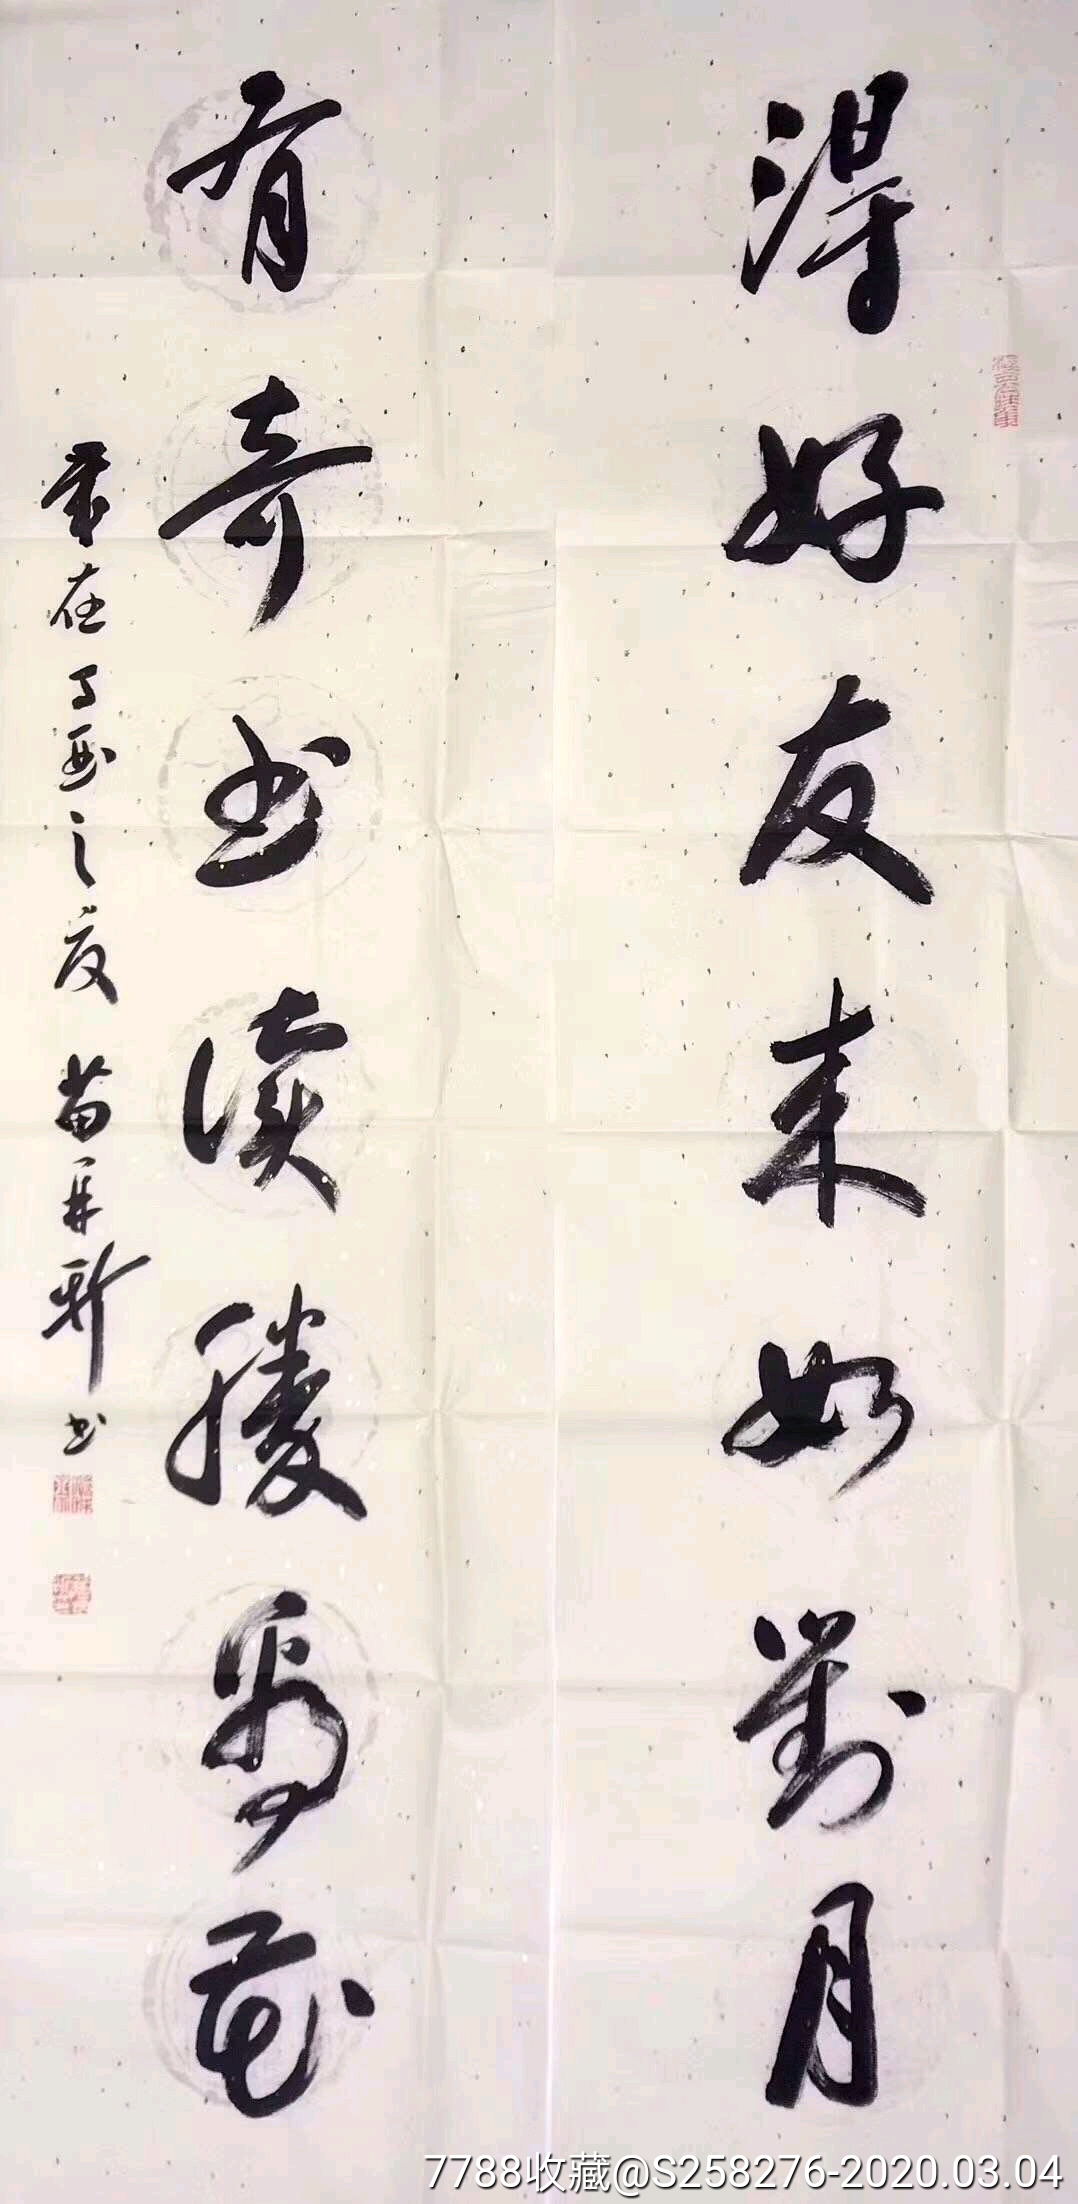 得好友来如對月
有奇书读胜看花
歲在丁酉之夏 苗再新书
7788收藏@S258276-2020.03.04